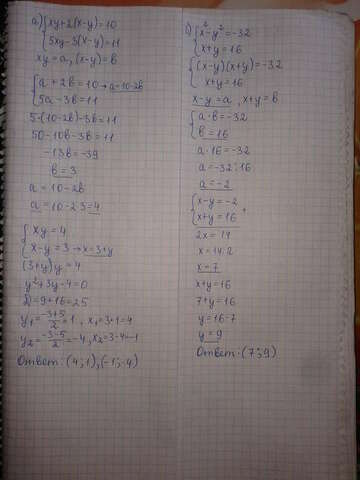 а) { xy+2(x-y)=10
{ 5xy-3(x-y)=11
xy=a, (x-y)=b
{ a+2b=10 → a=10-2b
{ 5a-3b=11
5·(10-2b)-3b=11
50-10b-3b=11
-13b=-39
b=3
a=10-2b
a=10-2·3=4
{ xy=4
{ x-y=3 → x=3+y
(3+y)y=4
y²+3y-4=0
D=9+16=25
y₁=(-3+5)/2=1, x₁=3+1=4
y₂=(-3-5)/2=-4, x₂=3-4=-1
Ответ: (4;1),(-1;-4)
{ x²-y²=-32
{ x+y=16
{ (x-y)(x+y)=-32
{ x+y=16
x-y=a, x+y=b
{ a·b=-32
{ b=16
a·16=-32
a=-32:16
a=-2
{ x-y=-2
{ x+y=16 +
2x=14
x=14:2
x=7
x+y=16
7+y=16
y=16-7
y=9
Ответ: (7;9)